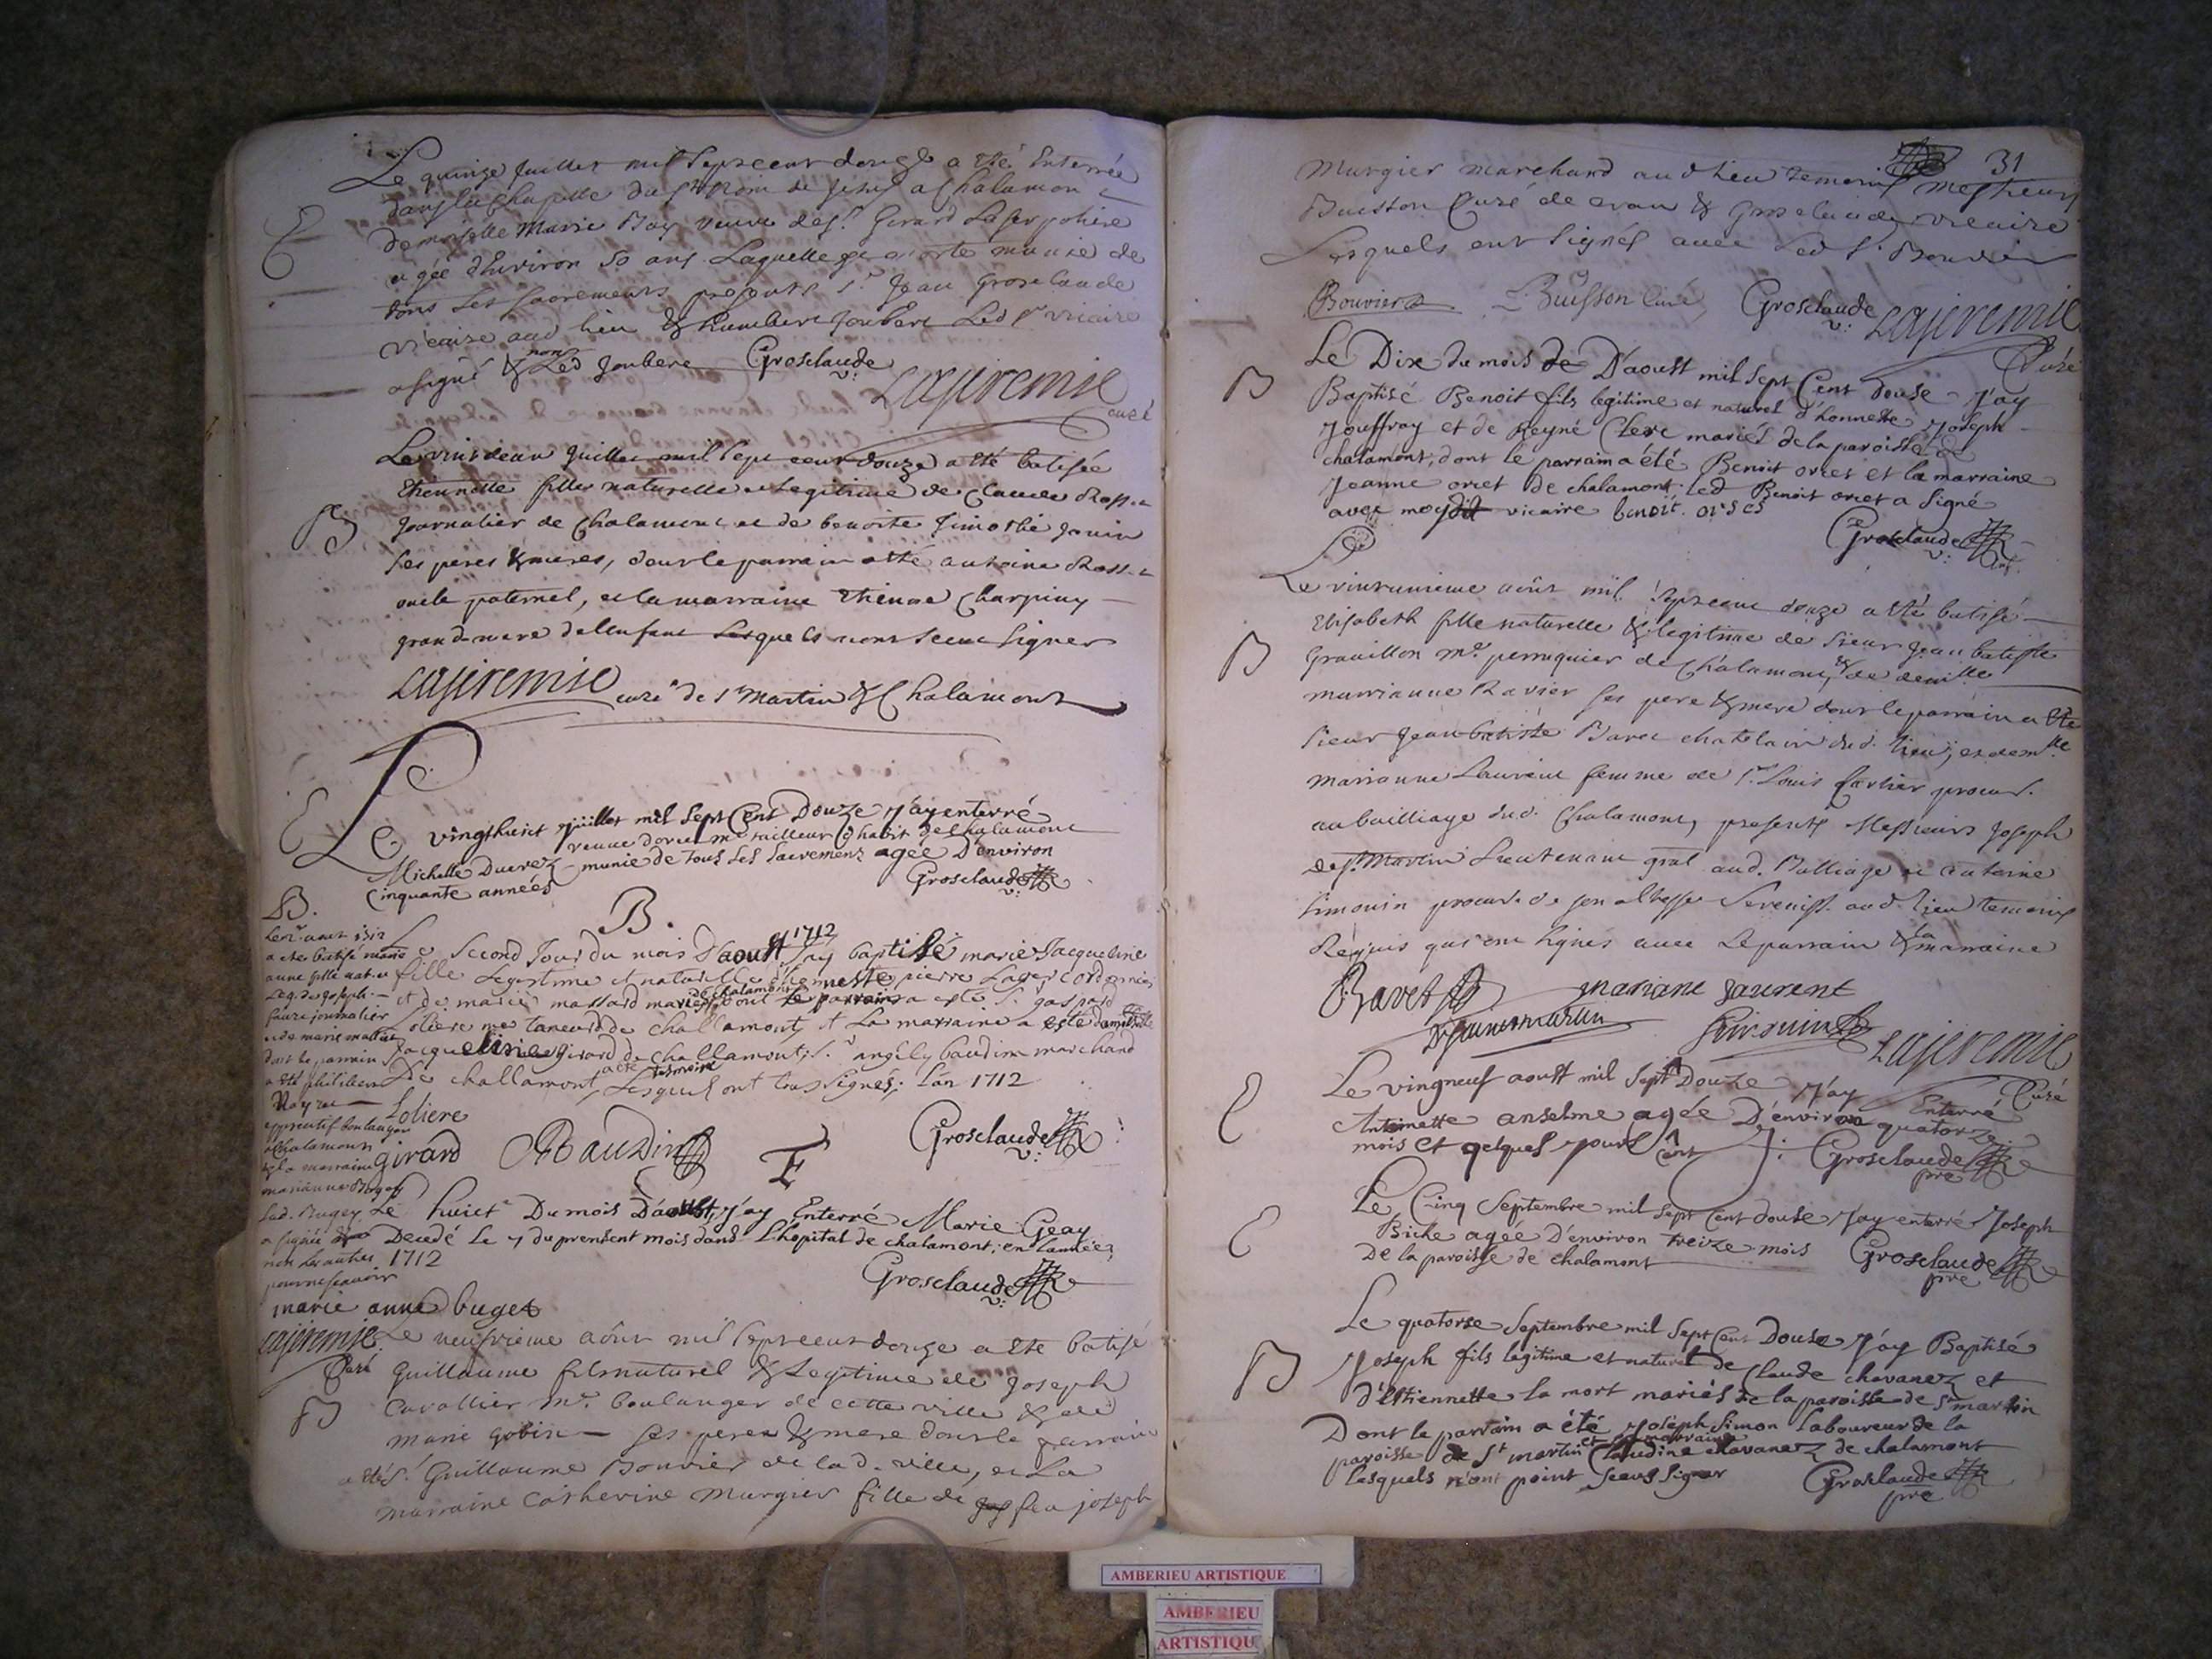 Le quinze juillet mil sept cent douze a été Enterrée
dans la chapelle du St nom de jesus a Chalamon
demoiselle Marie Bay veuve de Sr. Girard
agée d'Environ 50 ans Laquelle morte munie de
tous les sacrements presents Sr. Jean Grosclaude
vicaire aud lieu & humbert Joubert Led Sr vicaire
a signé & non Led Joubert Grosclaude
v:
Lajeremie
curé
B
Le vint deux juillet mil sept cent douze a été batisée
Etiennette fille naturelle et legitime de Claude
journalier de Chalamont et de benoite
ses peres & meres, dont le parrain a été antoine
oncle paternel, et la marraine Etienne Charpiny
grand-mere de l'enfant Lesquels n'ont sceu signer
Lajeremie curé de St Martin & Chalamont
Le vingthuict juillet mil sept Cent Douze J'ay enterré
veuve mr tailleur d'habit de chalamont
Michelle Ducrez munie de tous les sacremens agée D'environ
Cinquante années Grosclaude
v:
B.
Le 2e aout 1712
a été batisé marie
anne fille nat. et
Leg. de joseph
faure journalier
et de marie
dont le parrain
a été philibert
apprentif boulanger
a Chalamon
& la marraine
marianne Buget
Lad. Bugey
a signé
non les autres
pour ne scavoir
marie anne buget
Lajeremie
Curé
B.
Le second Jour du mois D'aoust 1712 J'ay baptisé marie Jacqueline
fille Legitime et naturelle d'honneste pierre Lager cordonnier
et de marie massard mariés de chalamont dont Le parrain a esté Sr. gaspard
Loliere me taneur de challamont, et La marraine a esté damoiselle
Jacqueline girard de challamont; Sr. baudin marchand
De challamont, a été tesmoin Lesquels ont tous signés; L'an 1712
Loliere
girard Baudin Grosclaude
v:
Le huict Du mois D'aoust, J'ay Enterré Marie Geay
Decedé Le 7 du present mois dans L'hopital de chalamont, en l'année
1712
Grosclaude
v:
B
Le neufvieme aôut mil sept cent douze a été batisé
Guillaume fils naturel & Legitime de Joseph
Cavallier mr. boulanger de cette ville & de
marie gobin ses peres & mere dont le parrain
a été Sr. Guillaume Bouvier de lad. ville, et La
marraine Catherine Murgier fille de feu joseph
31
Murgier marchand aud lieu temoins messieurs
Buisson Curé de cran & Grosclaude vicaire
Lesquels ont signés avec Led Sr. Bouvier
Bouvier Buisson Curé Grosclaude Lajeremie
v: Curé
B
Le Dix du mois de D'aoust mil sept Cent douse J'ay
Baptisé Benoit fils legitime et naturel d'honneste Joseph
Jouffray et de Reyné Clere mariés de la paroisse de
chalamont, dont le parrain a été Benoit oriet et la marraine
Jeanne oriet de chalamont. led Benoit oriet a signé
avec moydit vicaire benoit
Grosclaude
v:
B
Le vintunieme aôut mil sept cent douze a été batisé
Elisabeth fille naturelle & legitime de sieur Jean batiste
Grauillon mr. perruquier de Chalamont & de demlle
marrianne Ravier ses pere & mere dont le parrain a été
sieur Jean batiste Bavet chatelain dud. lieu, et demlle
marianne Laurent femme de Sr. Louis Carlier procur.
au bailliage dud. Chalamont, presents Messieurs Joseph
de St. Martin Lieutenant gnal aud. Balliage et antoine
Simonin procur. de son altesse Sereniss. aud. lieu temoins
Requis qui ont signés avec Le parrain & la marraine
Bavet mariane laurent
Lajeremie
Curé
Le vingneuf aoust mil sept Cent Douze J'ay Enterré
Antoinette anselme agée D'environ quatorze
mois et qelques jours Grosclaude
pre
Le Cinq Septembre mil sept Cent douse J'ay enterré Joseph
Biche agée D'environ treize mois
De la paroisse de chalamont Grosclaude
pre
B
Le quatorse Septembre mil sept Cent Douse J'ay Baptisé
Joseph fils legitime et naturel de Claude chavanez et
d'Estiennette la mort mariés de la paroisse de St martin
Dont le parrain a été Joseph Simon laboureur de la
paroisse de St martin et la marraine Claudine chavanez de chalamont
lesquels n'ont point sceus signer Grosclaude
pre
AMBERIEU ARTISTIQUE
AMBERIEU
ARTISTIQU